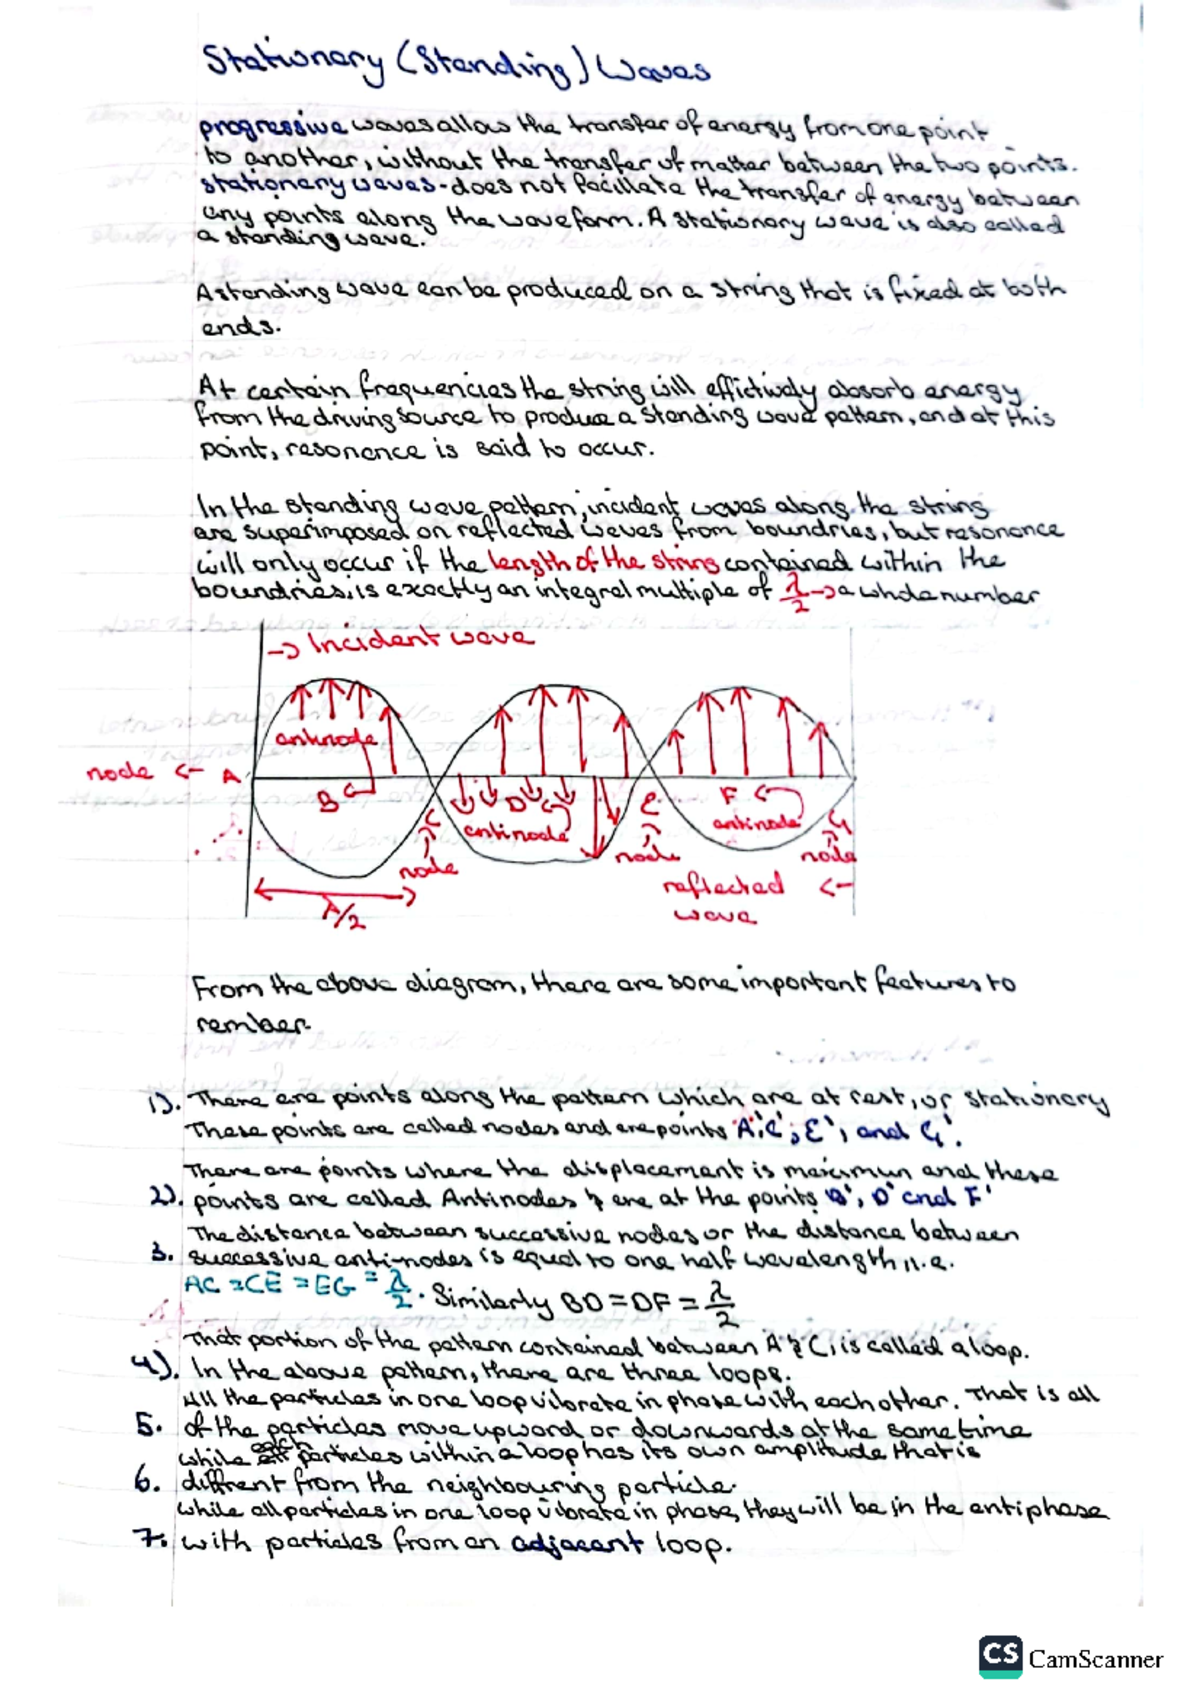 Stationary (Standing) Waves
progressive waves allow the transfer of energy from one point
to another, without the transfer of matter between the two points.
stationary waves - does not facillate the transfer of energy between
any points along the waveform. A stationary wave is also called
a standing wave.
A standing wave can be produced on a string that is fixed at both
ends.
At certain frequencies the string will effictively absorb energy
from the driving source to produce a standing wave pattern, and at this
point, resonance is said to occur.
In the standing wave pattern, incident waves along the string
are superimposed on reflected waves from boundries, but resonance
will only occur if the length of the string contained within the
boundries, is exactly an integral multiple of λ/2 → a whole number
→ Incident wave
antinode
node ← A
B
C
D
E
F
G
antinode
antinode
node
node
node
reflected ←
wave
λ/2
From the above diagram, there are some important features to
rember.
1). There are points along the pattern which are at rest, or stationary
These points are called nodes and are points A', C', E', and G'.
There are points where the displacement is maximum and these
2). points are called Antinodes & are at the points B', D' and F'
The distance between successive nodes or the distance between
3. successive anti-nodes is equal to one half wavelength, i.e.
AC = CE = EG = λ/2. Similarly BD = DF = λ/2
That portion of the pattern contained between A & C, is called a loop.
4). In the above pattern, there are three loops.
All the particles in one loop vibrate in phase with each other. That is all
5. of the particles move upward or downwards at the same time
while each particles within a loop has its own amplitude that is
6. diffrent from the neighbouring particle.
while all particles in one loop vibrate in phase, they will be in the antiphase
7. with particles from an adjacent loop.
CS CamScanner